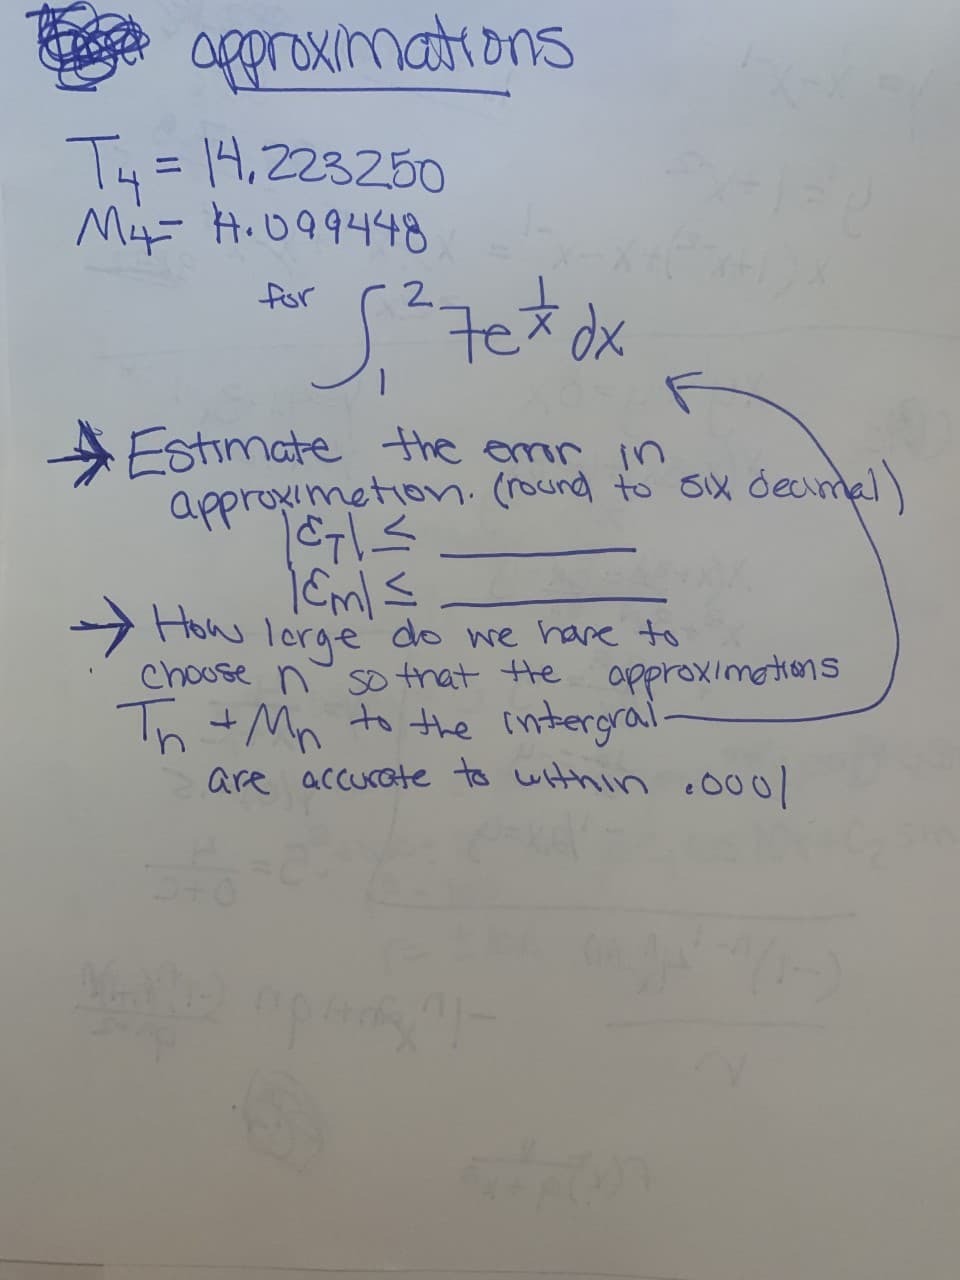 approximations
T₄ = 14.223250
M₄ = 14.099448
for ∫₁² 7e^(1/x) dx
→ Estimate the error in
approximetion. (round to six decimal)
|ET| ≤ ______
|Em| ≤ ______
→ How large do we have to
choose n so that the approximations
Tn + Mn to the intergral
are accurate to within .0001